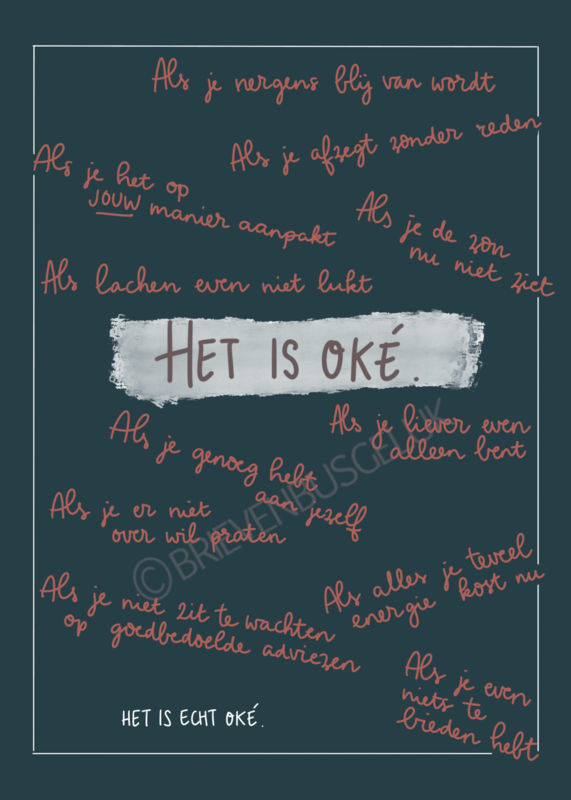 Als je nergens blij van wordt
Als je afzegt zonder reden
Als je het op
JOUW manier aanpakt
Als je de zon
nu niet ziet
Als lachen even niet lukt
HET IS OKÉ.
Als je genoeg hebt
aan jezelf
Als je liever even
alleen bent
Als je er niet
over wil praten
©BRIEVENBUSGELUK
Als alles je teveel
energie kost nu
Als je niet zit te wachten
op goedbedoelde adviezen
Als je even
niets te
bieden hebt
HET IS ECHT OKÉ.